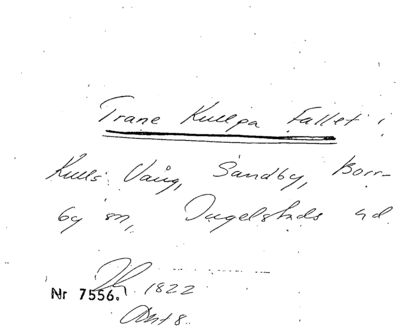 Trane Kullga Fallet i
Kulls Vång, Sandby, Borr-
by sn, Ingelstads hd.
1822
Nr 7556.
Akt 8.